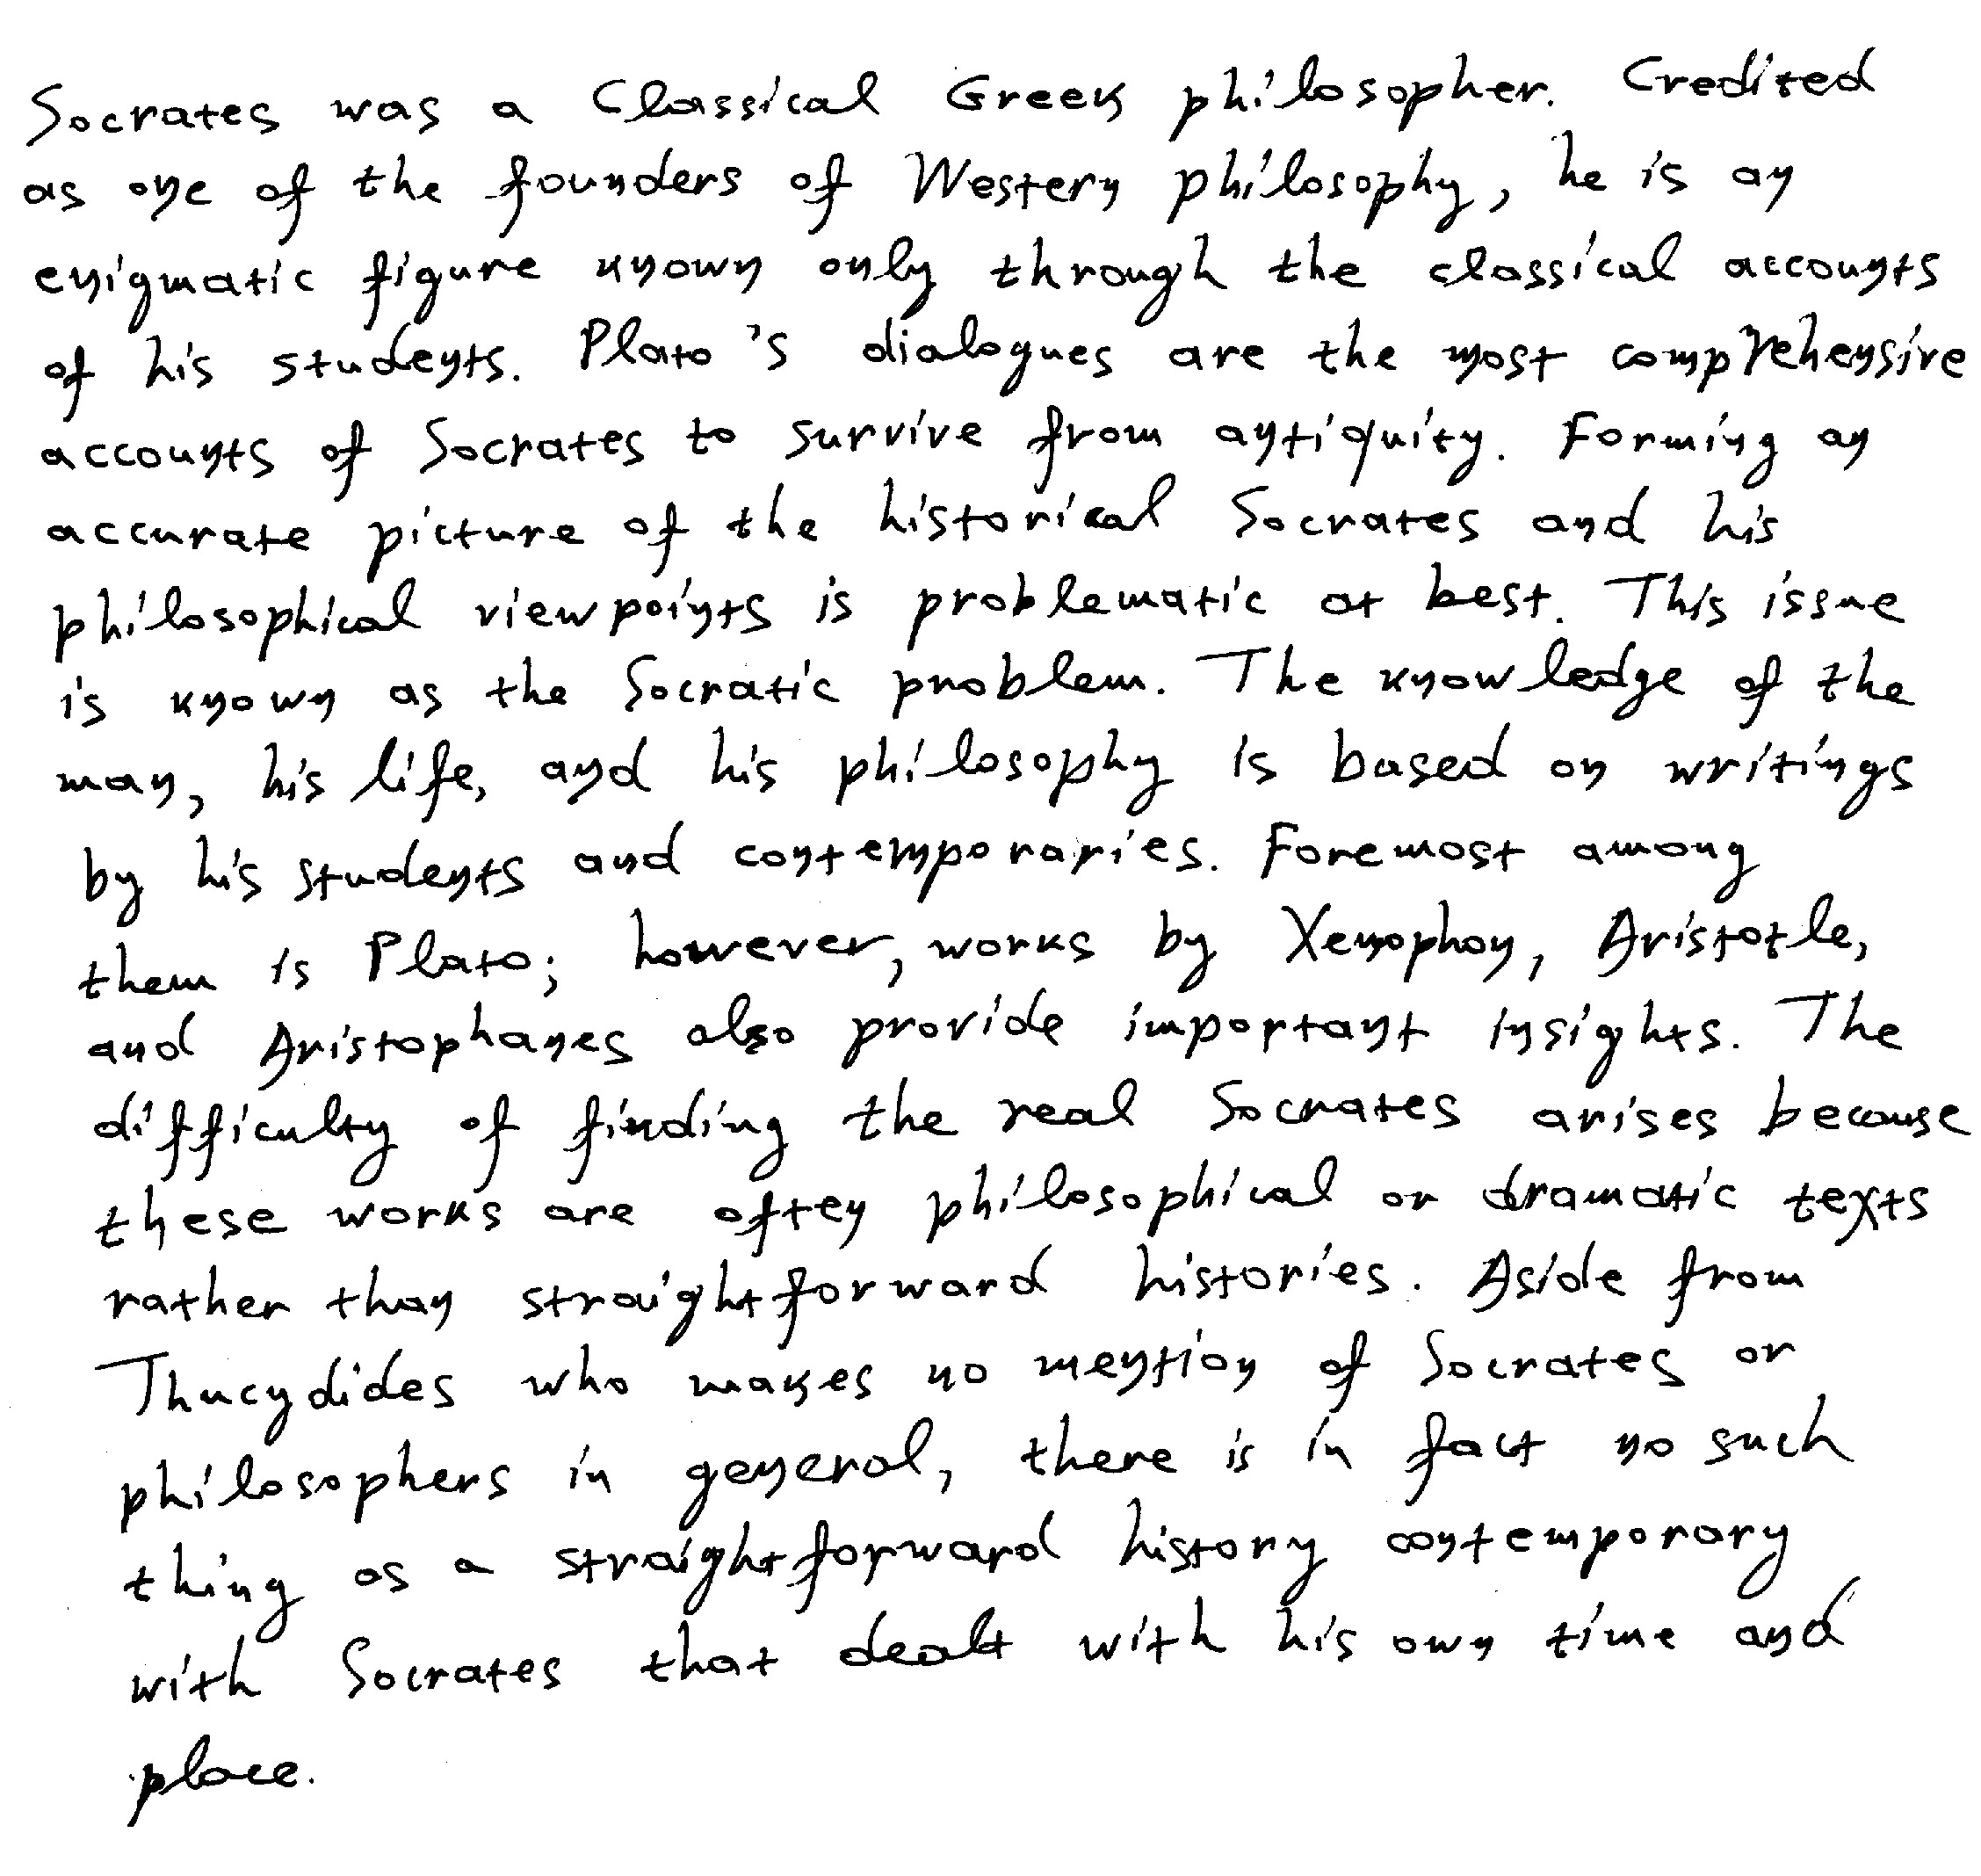 Socrates was a Classical Greek philosopher. Credited
as one of the founders of Western philosophy, he is an
enigmatic figure known only through the classical accounts
of his students. Plato's dialogues are the most comprehensive
accounts of Socrates to survive from antiquity. Forming an
accurate picture of the historical Socrates and his
philosophical viewpoints is problematic at best. This issue
is known as the Socratic problem. The knowledge of the
man, his life, and his philosophy is based on writings
by his students and contemporaries. Foremost among
them is Plato; however, works by Xenophon, Aristotle,
and Aristophanes also provide important insights. The
difficulty of finding the real Socrates arises because
these works are often philosophical or dramatic texts
rather than straightforward histories. Aside from
Thucydides who makes no mention of Socrates or
philosophers in general, there is in fact no such
thing as a straightforward history contemporary
with Socrates that dealt with his own time and
place.